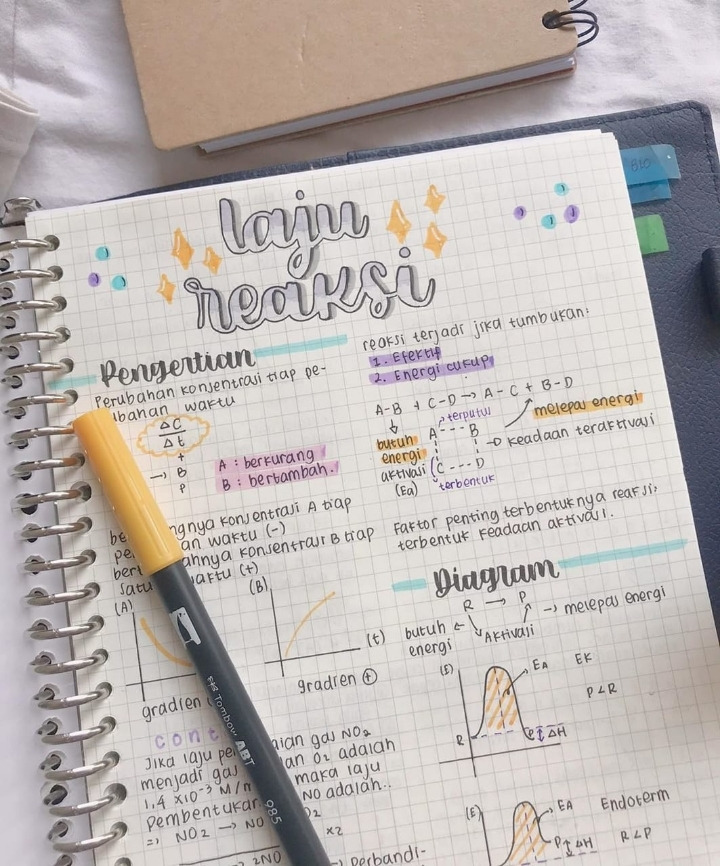 BIO
laju
reaksi
Pengertian
Perubahan konsentrasi tiap pe-
ubahan waktu
ΔC
Δt
+
→ B
P
A : berkurang
B : bertambah.
ngnya konsentrasi A tiap
an waktu (-)
ahnya konsentrasi B tiap
satu waktu (+)
(A)
(B)
(t)
gradien
gradien (+)
cont
Jika laju pe aian gas NO2
menjadi gas an O2 adalah
1,4 x10⁻³ M/m maka laju
pembentukan NO adalah..
=> NO2 → NO O2
x2
2NO
Perbandi-
reaksi terjadi jika tumbukan:
1. Efektif
2. Energi cukup
A-B + C-D → A-C + B-D
↓
butuh
energi
aktivasi
(Ea)
terputus
A --- B
C --- D
terbentuk
melepas energi
→ keadaan teraktivasi
Faktor penting terbentuknya reaksi,
terbentuk keadaan aktivasi.
Diagram
R → P
butuh ←
energi
Aktivasi
→ melepas energi
(E)
EA
EK
P<R
R
P ↕ ΔH
(E)
EA
Endoterm
P ↕ ΔH
R<P
Tombow ABT
985